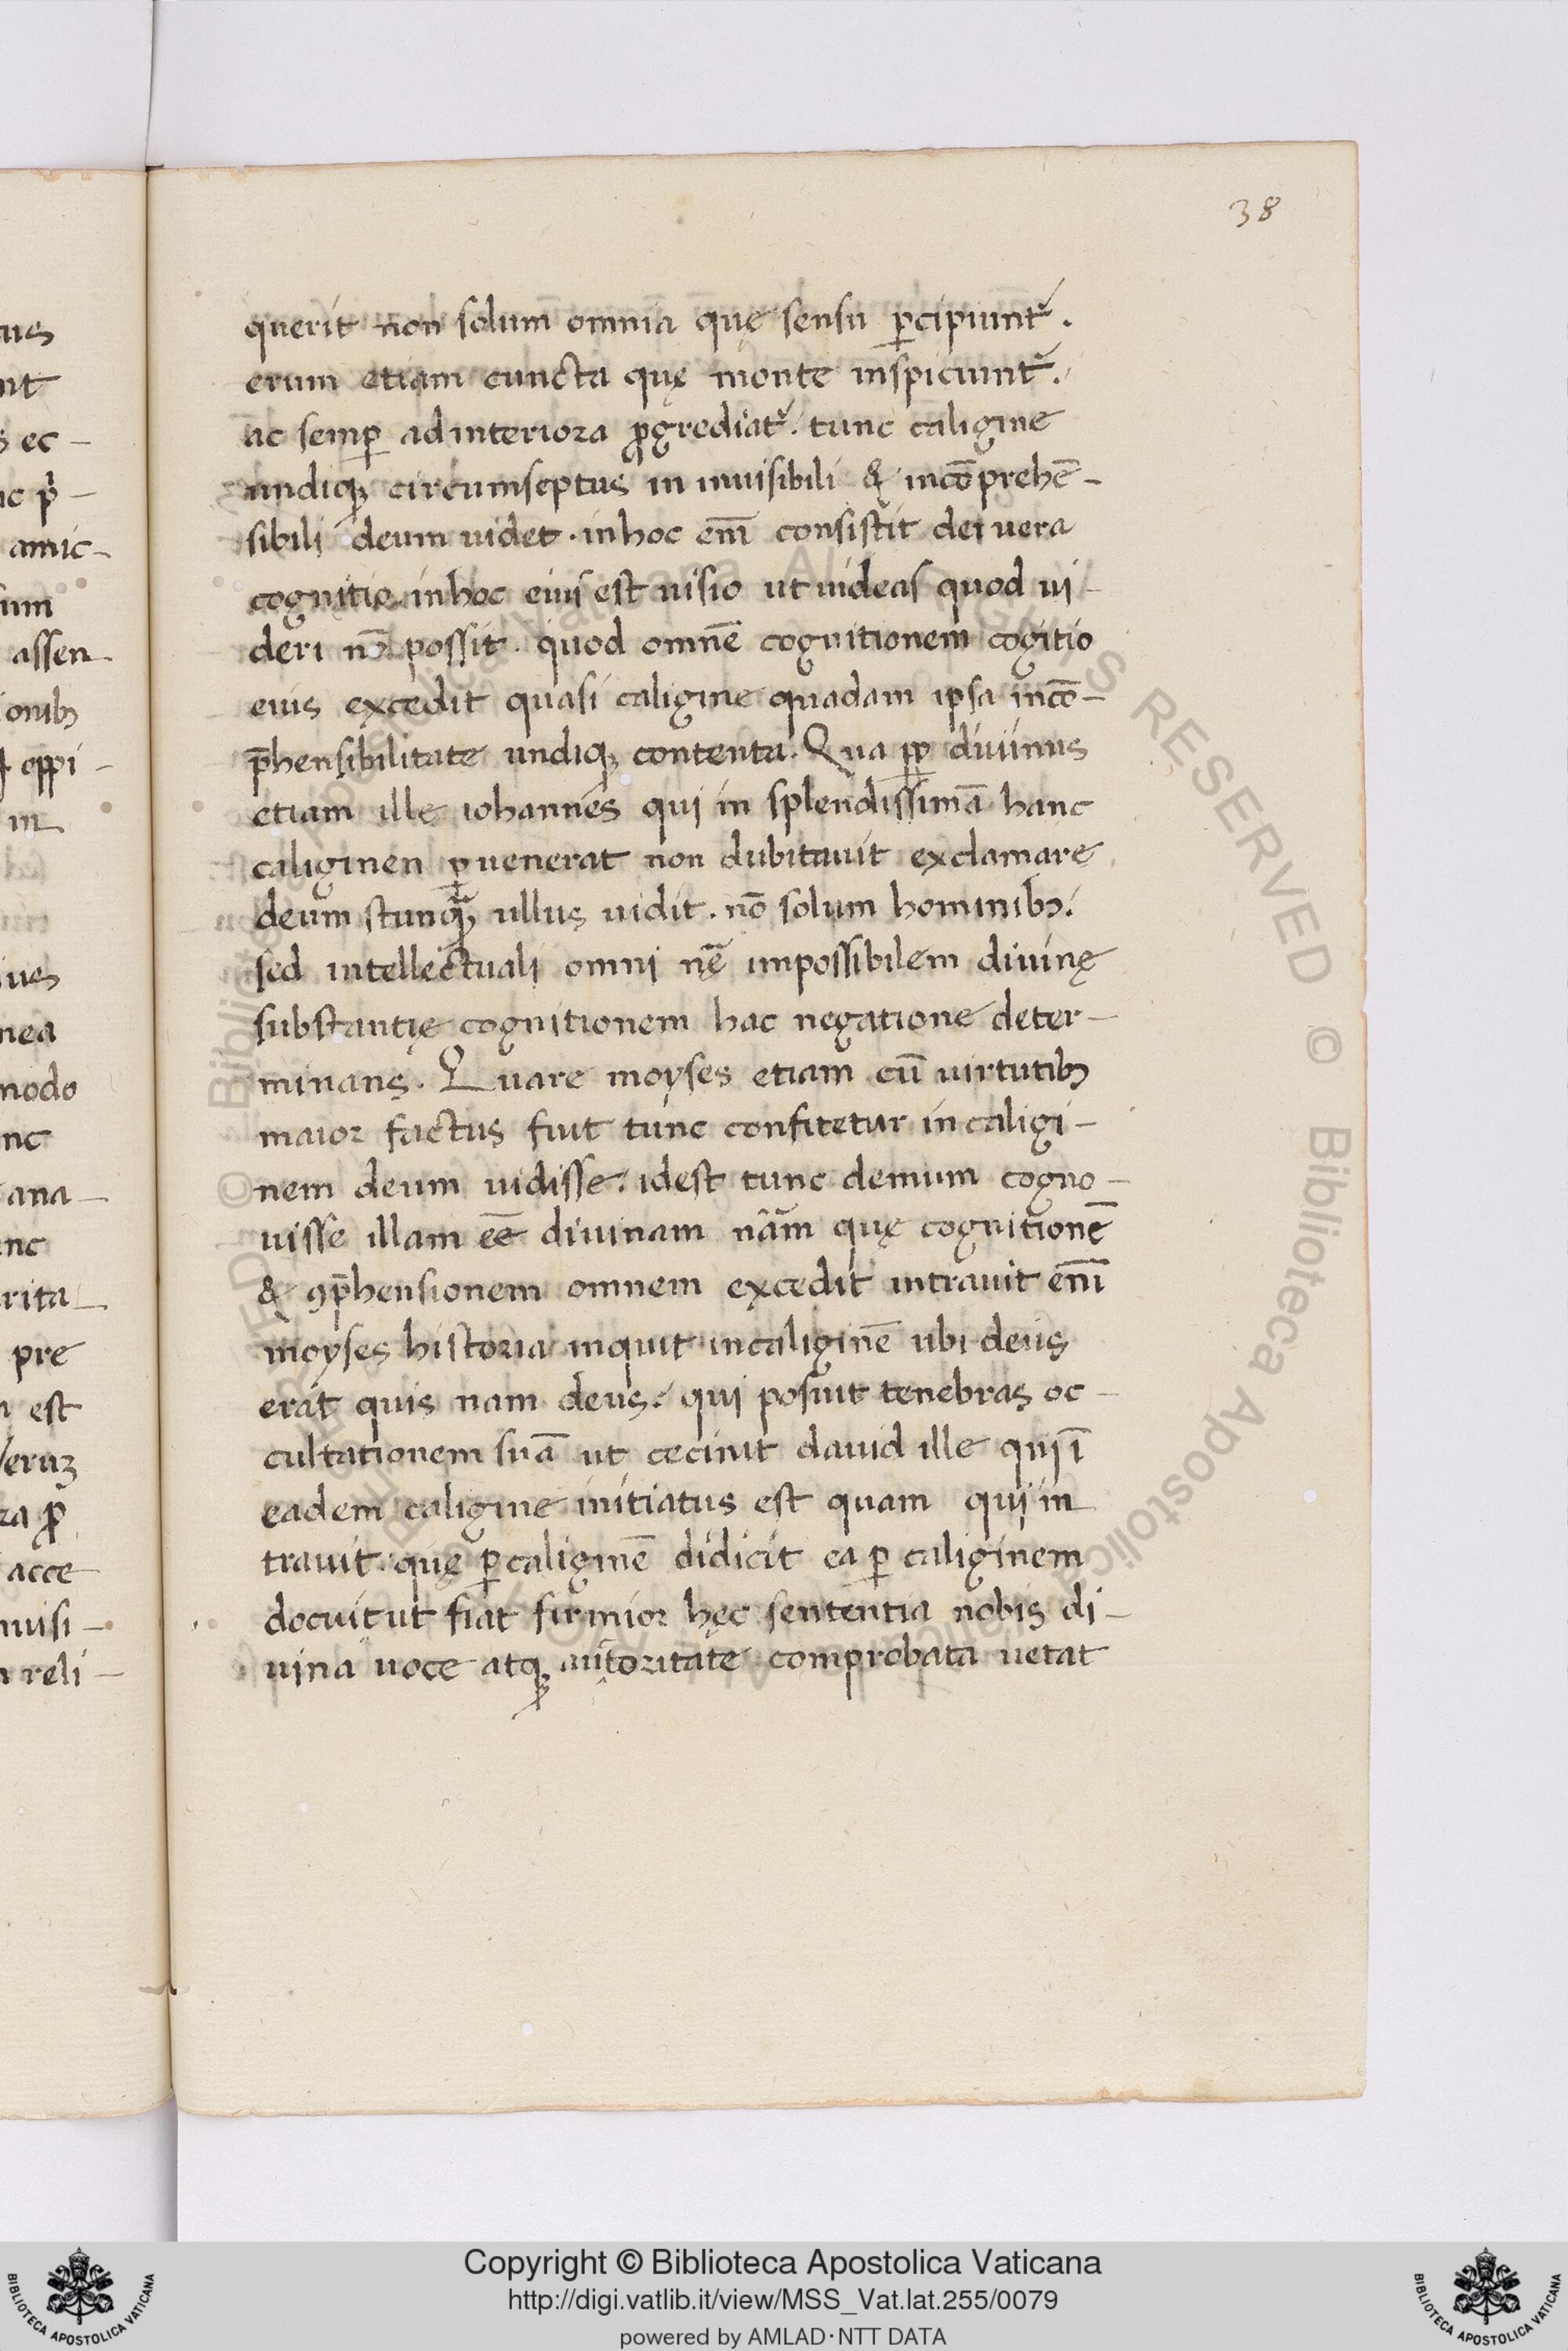 38
querit non solum omnia quę sensu ꝑcipiunt᷑.
erum etiam cuncta quę monte inspiciunt᷑.
ac semꝑ ad interiora ꝓgrediat᷑. tunc caligine
undiqꝫ circumseptus in inuisibili & incōprehē-
sibili deum uidet. in hoc em̄ consistit dei uera
cognitio in hoc eius est uisio ut uideas quod ui-
deri nō possit. quod omnē cognitionem cogitio
eius excedit quasi caligine quadam ipsa incō-
p̄hensibilitate undiqꝫ contenta. Qua ꝓꝑ diuinus
etiam ille iohannes qui in splendissimā hanc
caliginen ꝑuenerat non dubitauit exclamare
deum ullus uidit. nō solum hominibꝫ.
sed intellectuali omni nę̄ impossibilem diuinę
substantię cognitionem hac negatione deter-
minans. Quare moyses etiam cū uirtutibꝫ
maior factus fuit tunc confitetur in caligi-
nem deum uidisse. idest tunc demum cogno-
uisse illam eē diuinam nām quę cognitionē
& ꝯp̄hensionem omnem excedit intrauit em̄
moyses historia inquit in caliginē ubi deus
erat quis nam deus. qui posuit tenebras oc-
cultationem suā ut cecinit dauid ille qui ī
eadem caligine initiatus est quam qui in
trauit. quę ꝑ caliginē didicit ea ꝑ caliginem
docuit ut fiat firmior hęc sententia nobis di-
uina uoce atqꝫ autoritate comprobata uetat
tus
nt
s ec-
amic-
assen
modo
nc
ana-
unc
rita
pre
est
acce
reli-
© Biblioteca Apostolica Vaticana ALL RIGHTS RESERVED
Copyright © Biblioteca Apostolica Vaticana
http://digi.vatlib.it/view/MSS_Vat.lat.255/0079
powered by AMLAD·NTT DATA
BIBLIOTECA APOSTOLICA VATICANA
BIBLIOTECA APOSTOLICA VATICANA